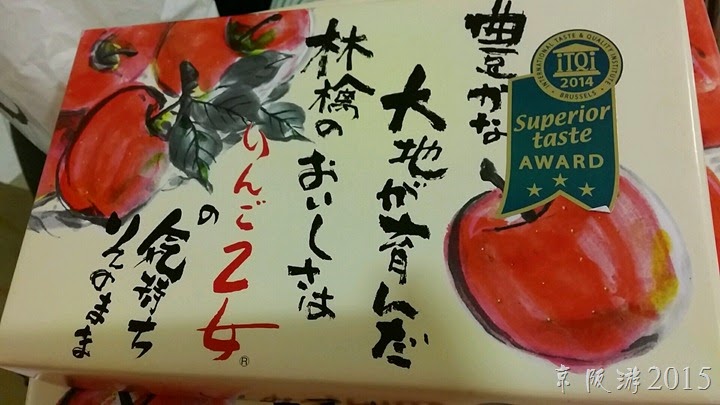 豊かな
大地が育んだ
林檎のおいしさは
りんご乙女®
の
気持ち
そのまま
INTERNATIONAL TASTE & QUALITY INSTITUTE
iTQi
2014
BRUSSELS
Superior
taste
AWARD
京阪游2015